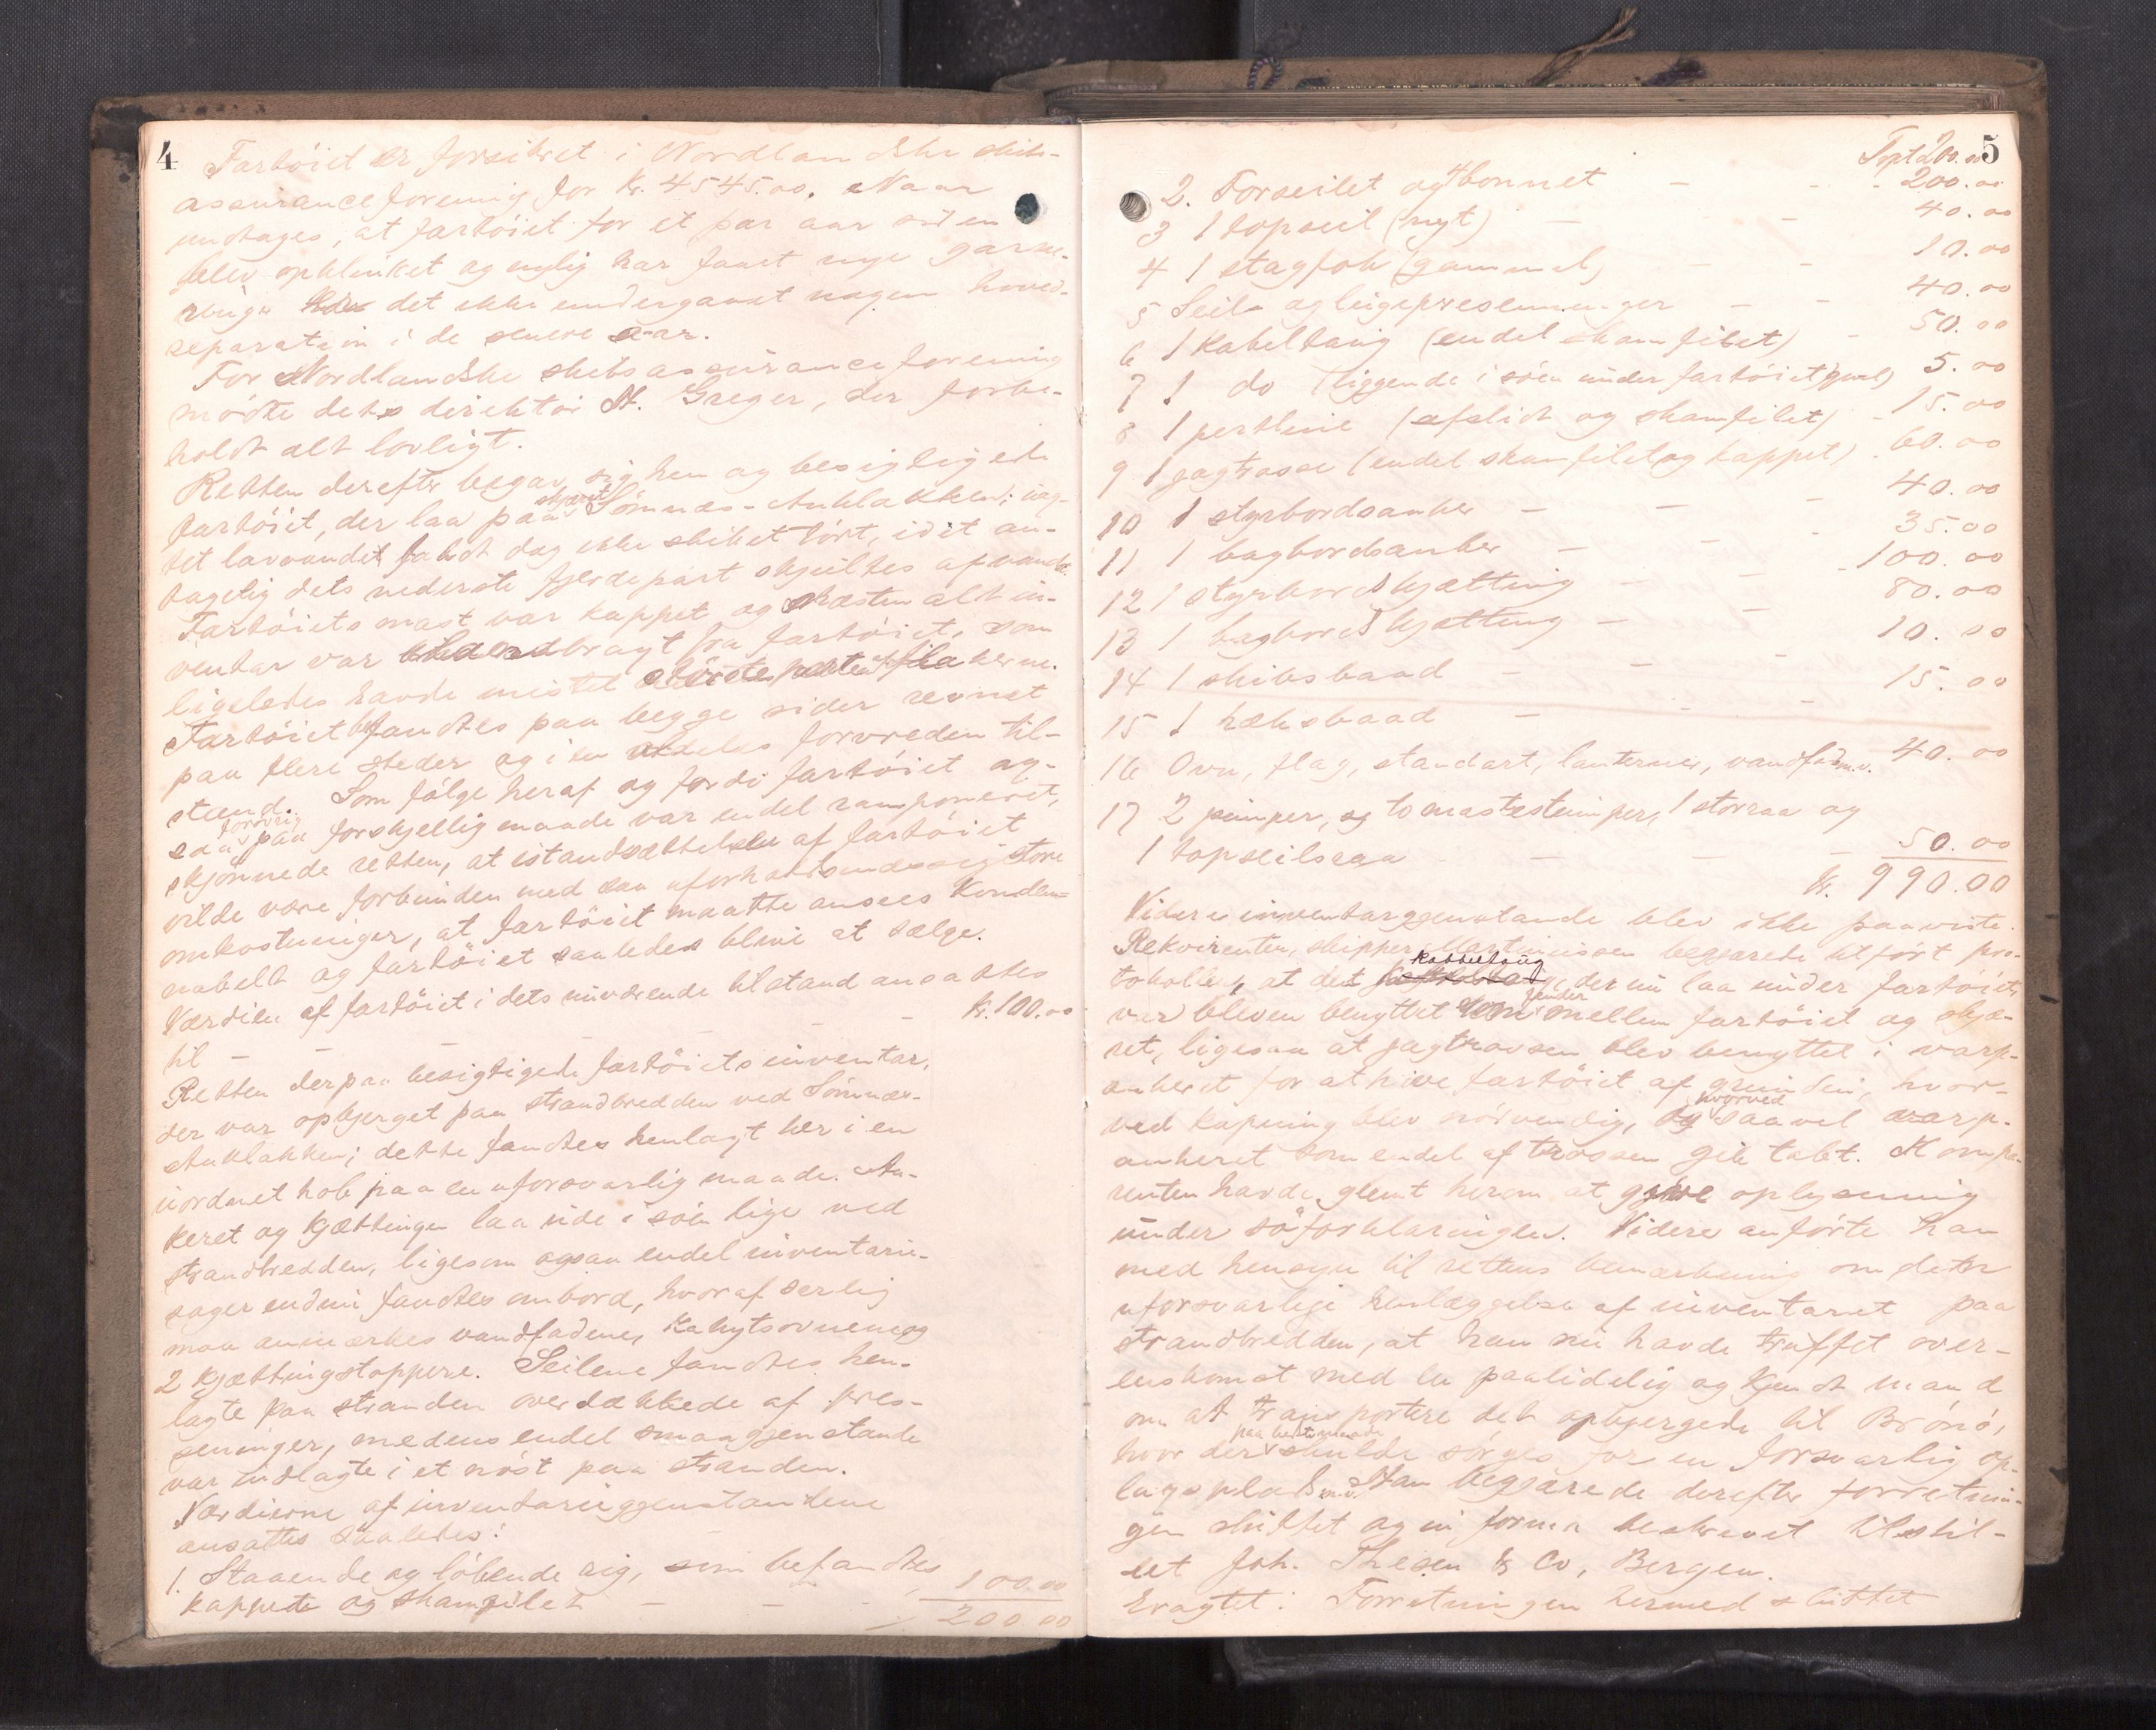 4
Fartöiet er forsikret i Nordlandske skibs-
assuranceforening for Kr. 4545.00. Naar
undtages, at fartöiet for et par aar siden
blev opklinket og nylig har faaet nye garne-
ringer har det ikke undergaaet nogen hoved-
reparation i de senere aar.
For Nordlandske skibsassuranceforening
mödte dets direktör N. Greger, der forbe-
holdt alt lovligt.
Retten derefter begav sig hen og besigtigede
fartöiet, der laa paa skjæret Sömnæs-Anklakken; uag-
tet lavvandet faldt dog ikke skibet tört, idet an-
tagelig dets nederste fjerdepart skjultes af vandet.
Fartöiets mast var kappet og næsten alt in-
ventar var bragt fra fartöiet, som
ligeledes havde mistet störsteparten af filakerne.
Fartöiet befandtes paa begge sider revnet
paa flere steder og i en aldeles forvreden til-
stand. Som fölge heraf og fordi fartöiet og-
saa forövrig paa forskjellig maade var endel ramponeret,
skjönnede retten, at istandsættelsen af fartöiet
vilde være forbunden med saa uforholdsmæssig store
omkostninger, at fartöiet maatte ansees kondem-
nabelt og fartöiet saaledes blive at sælge.
Værdien af fartöiet i dets nuværende tilstand ansattes
til - - - - kr. 100.00
Retten derpaa besigtigede fartöiets inventar,
der var opbjerget paa strandbredden ved Sömnæs-
Anklakken; dette fandtes henlagt her i en
uordnet hob paa en uforsvarlig maade. An-
keret og kjættingen laa ude i söen lige ved
strandbredden, ligesom ogsaa endel inventarie-
sager endnu fandtes ombord, hvoraf særlig
maa anmærkes vandfadene, kahytsovnen og
2 kjættingstoppere. Seilene fandtes hen-
lagte paa stranden overdækkede af pres-
seninger, medens endel smaagjenstande
var indlagte i et nöst paa stranden.
Værdierne af inventariegjenstandene
ansattes saaledes:
1. Staaende og löbende rig, som befandtes
kappet og skamfilet - - - 100.00
200.00
5
Tpt 200.00
2. Forseilet og 4 bonnet - - 200.00
3 1 topseil (nyt) - - 40.00
4 1 stagfok (gammel) - - 10.00
5 Seil- og lugepresenninger - - 40.00
6 1 kabeltaug (endel skamfilet) - 50.00
7 1 do (liggende i söen under fartöiet) 5.00
8 1 pertline (afslidt og skamfilet) - 15.00
9 1 jagtrosse (endel skamfilet og kappet) - 60.00
10 1 styrbordsanker - - - 40.00
11 1 bagbordsanker - - - 35.00
12 1 styrbordskjætting - - 100.00
13 1 bagbordskjætting - - 80.00
14 1 skibsbaad - - - 10.00
15 1 hæksbaad - - - 15.00
16 Ovn, flag, standart, lanterner, vandfad m.v. 40.00
17 2 pumper, og to mastestumper, 1 storraa og
1 topseilsraa - - - 50.00
kr. 990.00
Videre inventargjenstande blev ikke paaviste.
Rekvirenten, skipper Martinussen begjærede tilfört pro-
tokollen, at det kabbeltaug, der nu laa under fartöiet,
var bleven benyttet som fender mellem fartöiet og skjæ-
ret, ligesaa at jagtrossen blev benyttet i varp-
ankeret for at hive fartöiet af grunden, hvor-
ved kapning blev nödvendig, hvorved saavel varp-
ankeret som endel af trossen gik tabt. Kompa-
renten havde glemt herom at give oplysning
under söforklaringen. Videre anförte han
med hensyn til rettens bemærkning om den
uforsvarlige henlæggelse af inventaret paa
strandbredden, at han nu havde truffet over-
enskomst med en paalidelig og kjendt mand
om at transportere det opbjergede til Brönö,
hvor der paa bedste maade skulde sörges for en forsvarlig op-
lagsplads m.v. Han begjærede derefter forretnin-
gen sluttet og in forma beskrevet tilstil-
let Joh. Thesen & Co, Bergen.
Eragtet: Forretningen hermed sluttet